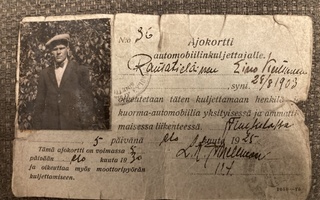 N:o 36
Ajokortti
automobiilinkuljettajalle.
Rautatieläinen Eino
synt. 28/8 1903
oikeutetaan täten kuljettamaan henkilö
kuorma-automobiilia yksityisessä ja ammatti
maisessa liikenteessä.
5 päivänä elo kuuta 1925
Tämä ajokortti on voimassa 5
päivään elo kuuta 1930
ja oikeuttaa myös moottoripyörän
kuljettamiseen.